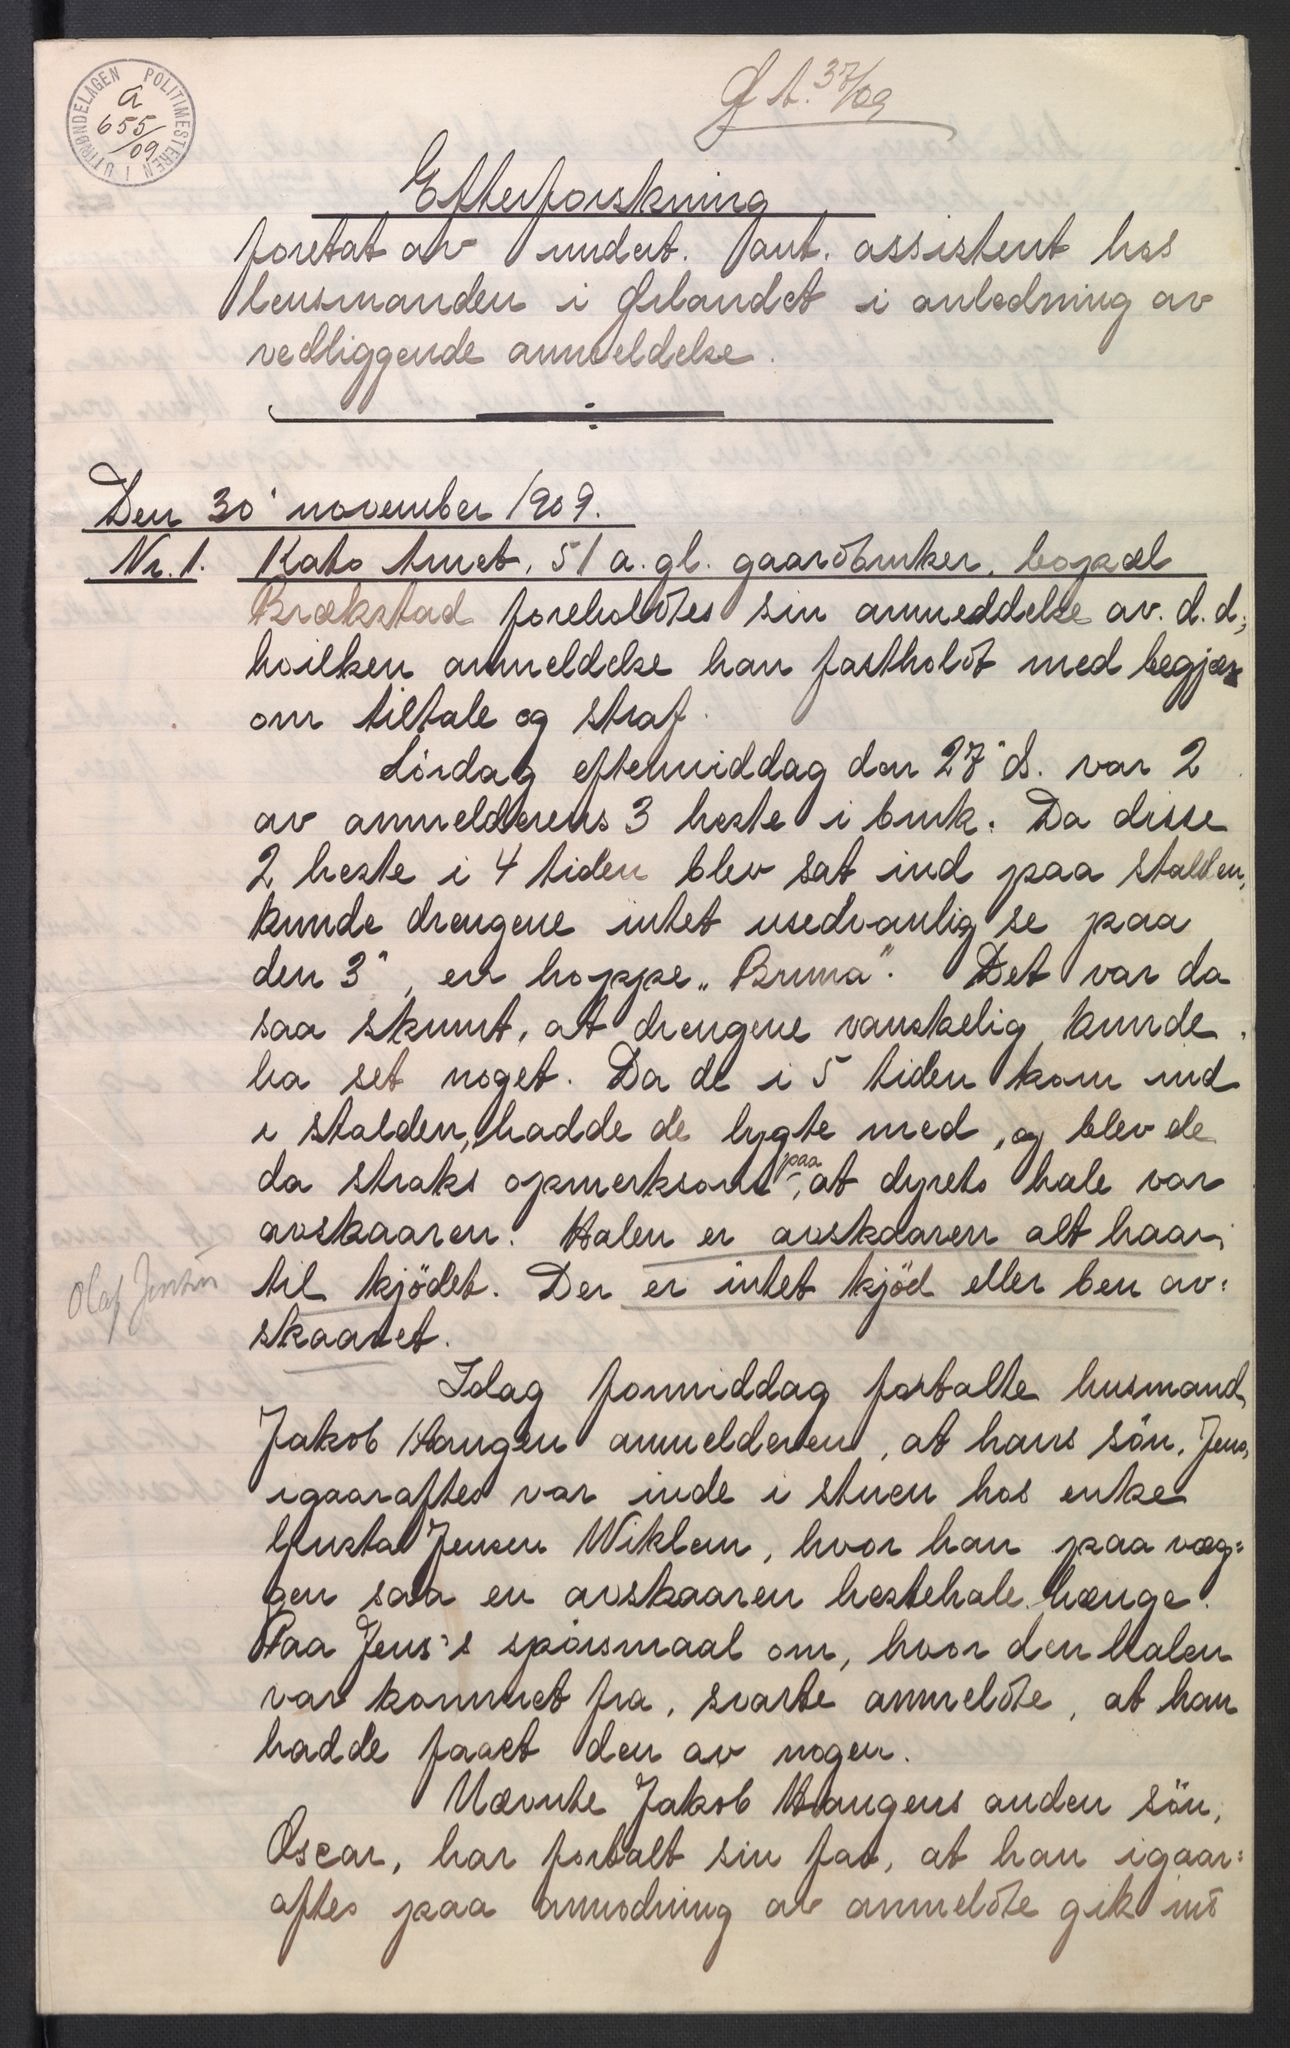 POLITIMESTEREN I UTTRØNDELAGEN
a
655/09
Ø A. 37/09
Efterforskning
foretat av undert. aut. assistent hos
lensmanden i Ørlandet i anledning av
vedliggende anmeldelse.
Den 30' november 1909.
Nr. 1. Kato 51 a. gl. gaardbruker, bopæl
Brækstad foreholdtes sin anmeddelse av d. d.,
hvilken anmeldelse han fastholdt med begjær
om tiltale og straf.
Lördag eftermiddag den 27" ds. var 2
av anmelderens 3 heste i bruk. Da disse
2 heste i 4 tiden blev sat ind paa stalden,
kunde drengene intet usedvanlig se paa
den 3", en hoppe „Bruna". Det var da
saa skumt, at drengene vanskelig kunde
ha set noget. Da de i 5 tiden kom ind
i stalden, hadde de lygte med, og blev de
da straks opmerksom paa, at dyrets hale var
avskaaren. Halen er avskaaren alt haar
til kjödet. Der er intet kjöd eller ben av=
skaaret.
Olaf Jensen
Idag formiddag fortalte husmand
Jakob Haugen anmelderen, at hans sön, Jens,
igaaraftes var inde i stuen hos enke
Gusta Jensen Wiklem, hvor han paa væg=
gen saa en avskaaren hestehale hænge.
Paa Jens's spörsmaal om, hvor den halen
var kommet fra, svarte anmeldte, at han
hadde faaet den av nogen.
Nævnte Jakob Haugens anden sön,
Oscar, har fortalt sin far, at han igaar=
aftes paa anmodning av anmeldte gik ind